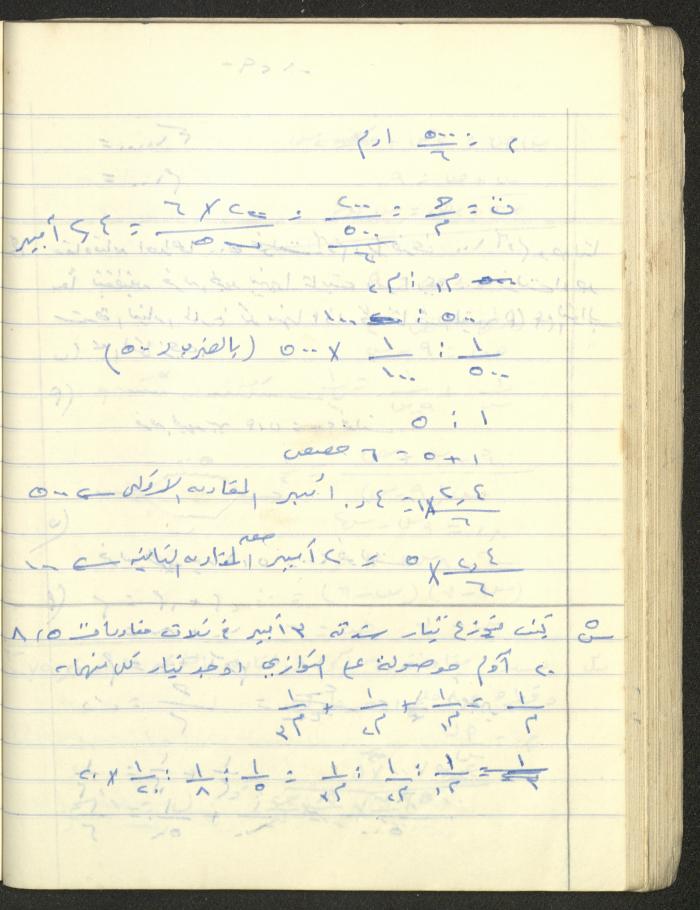 م = ٥٠٠/٦ اوم
ت = جـ/م = ٢٠٠/(٥٠٠/٦) = (٢٠٠ × ٦)/٥٠٠ = ٢,٤ أمبير
م١ : م٢
٥٠٠ : ١٠٠
١/٥٠٠ : ١/١٠٠ × ٥٠٠ (بالضرب × ٥٠٠)
١ : ٥
١ + ٥ = ٦ حصص
٢,٤/٦ × ١ = ٠,٤ أمبير المقاومه الاولى ٥٠٠
٢,٤/٦ × ٥ = ٢ أمبير حصة المقاومه الثانيه ١٠٠
س كيف يتوزع تيار شدته ٣ أمبير في ثلاث مقاومات ٥ ، ٨
٢٠ أوم موصولة على التوازي اوجد تيار كل منهما
١/م = ١/م١ + ١/م٢ + ١/م٣
١/م١ : ١/م٢ : ١/م٣ = ١/٥ : ١/٨ : ١/٢٠ × ٢٠